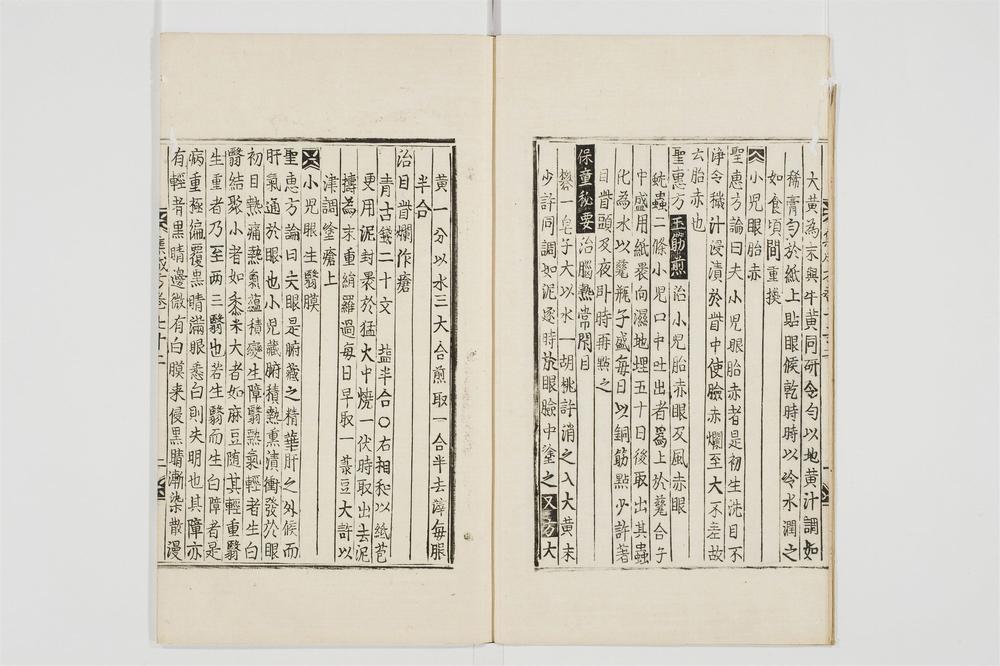 大黃為末與牛黃同研令匀以地黃汁調如
稀膏匀於紙上貼眼候乾時時以冷水潤之
如食頃間重換
小児眼胎赤
聖惠方論曰夫小児眼胎赤者是初生洗目不
淨令穢汁浸漬於眥中使瞼赤爛至大不差故
云胎赤也
聖惠方 玉筯煎 治小児胎赤眼及風赤眼
蚘蟲二條小児口中吐出者為上於甆合子
中盛用紙裹向濕地埋五十日後取出其蟲
化為水以甆瓶子盛每日以銅筯點少許著
目眥頭及夜卧時再點之
保童秘要 治腦熱常閉目
礬一皂子大以水一胡桃許消之入大黃末
少許同調如泥逐時於眼瞼中塗之 又方 大
黃一分以水三大合煎取一合半去滓每服
半合
治目眥爛作瘡
青古錢二十文 塩半合〇右相和以紙苞
更用泥封裹於猛火中燒一伏時取出去泥
擣為末重絹羅過每日早取一菉豆大許以
津調塗瘡上
小児眼生翳膜
聖惠方論曰夫眼是腑藏之精華肝之外候而
肝氣通於眼也小児藏腑積熱熏漬衝發於眼
初目熱痛熱氣蘊積變生障翳熱氣輕者生白
翳結聚小者如黍米大者如麻豆隨其輕重翳
生重者乃至兩三翳也若生翳而生白障者是
病重極徧覆黑睛滿眼悉白則失明也其障亦
有輕者黑睛邊微有白膜来侵黑睛漸染散漫